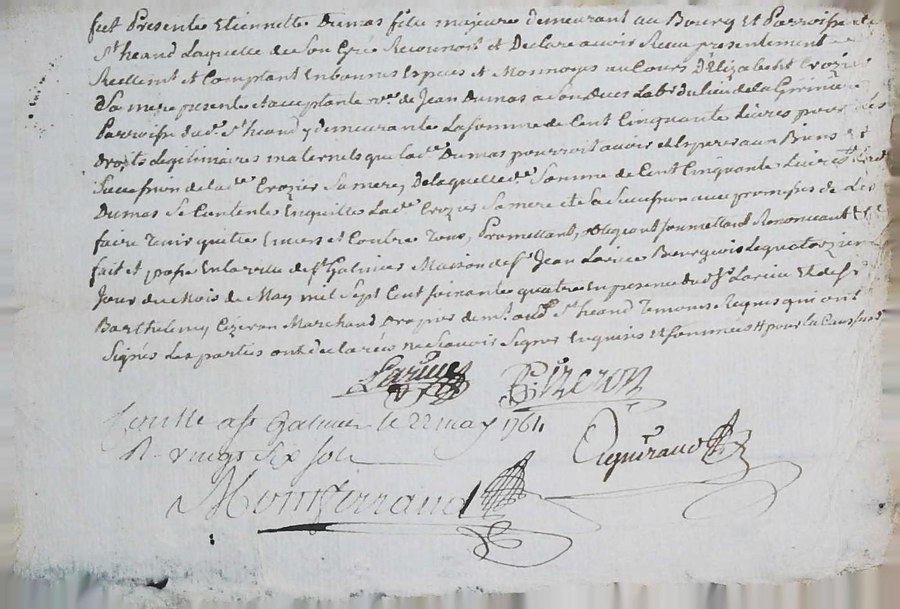 fut Presente Etiennette Dumas fille majeure demeurant au Bourg et Parroisse de
St heand Laquelle de son Gré Reconnoit et Declare avoir Receu presentement
Reellemt et Comptant En bonnes Espces et Monnoyes au Cours D'Elizabeth Crozier
Sa mere presente et acceptante ve. de Jean Dumas a son Deces Labr. du lieu de la
Parroisse dud. St heand y demeurante La somme de Cent Cinquante Livres pour
droits Legitimaires maternels que lad. Dumas pourroit avoir et Esperer aux Biens et
Succession de lad. Crozier Sa mere, De laquelle de. Somme de Cent Cinquante Livres
Dumas Se Contente En quitte Lad. Crozier Sa mere et sa Succession avec promesses de Les
faire Tenir quitte Envers et Contre Tous, Promettant, obligeant soumettant Renonceant
fait et passé En la ville de St Galmier Maison de Sr. Jean Larive Bourgeois Le quatorzieme
Jour du Mois de May mil Sept Cent soixante quatre En presence dud. Sr. Larive Et de Sr.
Barthelemy Cizeron Marchand Drapier de md. St heand Temoins Requis qui ont
Signés Les parties ont declarées ne Scavoir Signer Enquises et sommées
Larive Cizeron
Conttlé a St Galmier le 22 may 1764
R. vingt Six sols
Montferrand